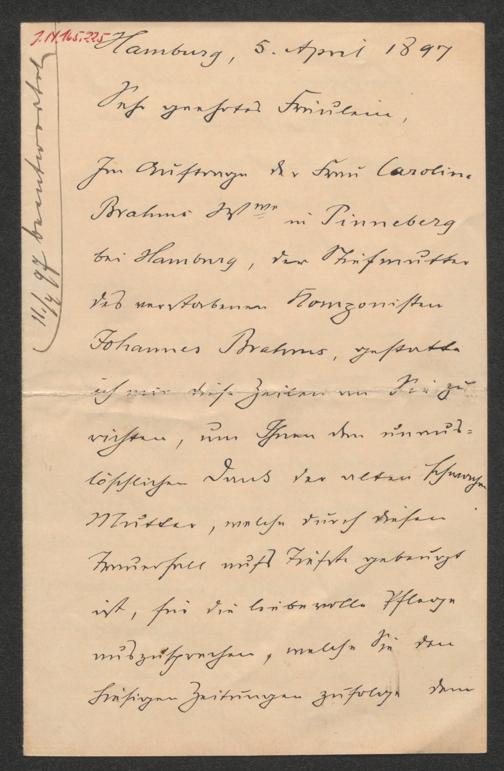 J.N. 165.225
Hamburg, 5. April 1897
Sehr geehrtes Fräulein,
Im Auftrage der Frau Caroline
Brahms Wwe in Pinneberg
bei Hamburg, der Stiefmutter
des verstorbenen Komponisten
Johannes Brahms, gestatte
ich mir diese Zeilen an Sie zu
richten, um Ihnen den unaus-
löschlichen Dank der alten schwachen
Mutter, welche durch diesen
Trauerfall aufs Tiefste gebeugt
ist, für die liebevolle Pflege
auszusprechen, welche Sie den
hiesigen Zeitungen zufolge dem
11./4 97 beantwortet